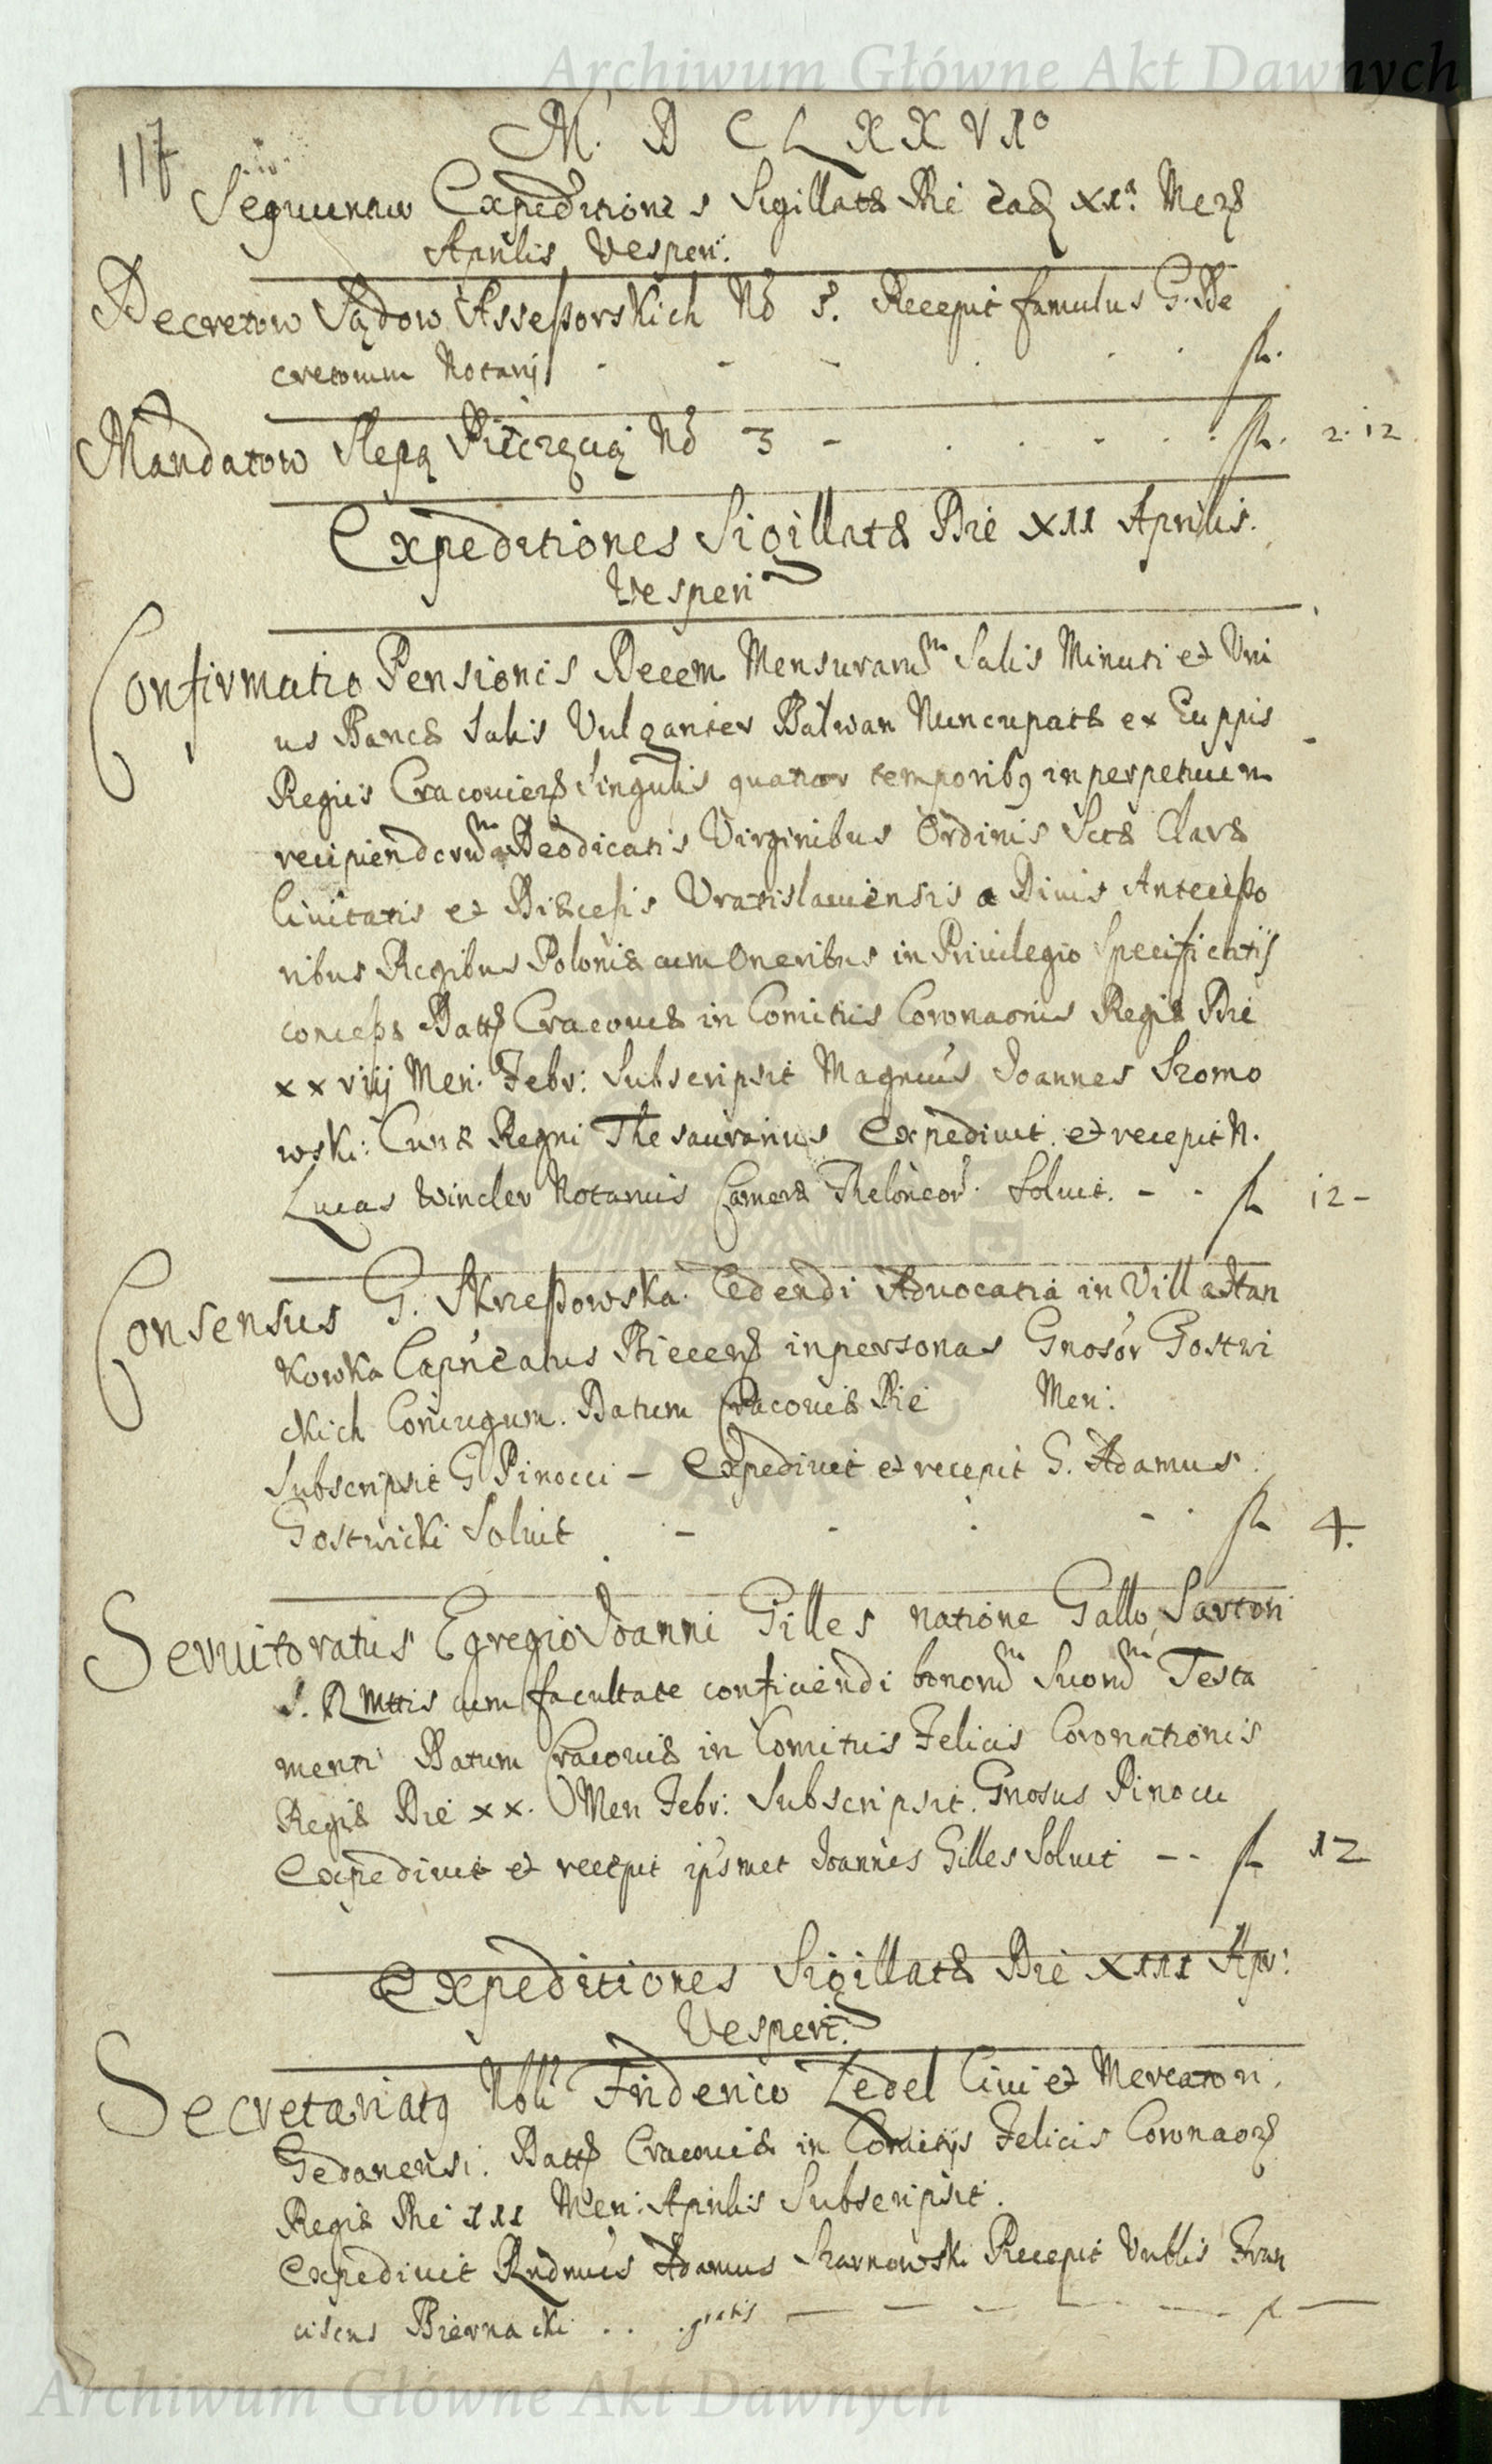 Archiwum Główne Akt Dawnych
117
M. D C L X X V I°
Sequuntur Expeditiones Sigillatæ Die ead XIa Mens
Aprilis Vesperi.
Decretow Sądow Assessorskich No 5. Recepit famulus G. De
cretorum Notarij - - - - fl.
Mandatow Slepą Pieczęcią No 3 - - - fl. 2. 12.
Expeditiones Sigillatæ Die XII Aprilis.
Vesperi
Confirmatio Pensionis Decem Mensurarum Salis Minuti et Uni
us Bancæ Salis Vulgariter Balwan Nuncupatæ ex Zuppis
Regiis Cracoviens Singulis quatuor temporibus in perpetuum
recipiendorum Deodicatis Virginibus Ordinis Sctæ Claræ
Civitatis et Diæcesis Vratislaviensis a Divis Antecesso
ribus Regibus Poloniæ cum Oneribus in Privilegio Specificatis
concessæ Datt Cracoviæ in Comitiis Coronaonis Regiæ Die
xxviij Men. Febr: Subscripsit Magnius Joannes Szomo
wski: Curiæ Regni Thesaurarius Expedivit et recepit N.
Lucas Wincler Notarius Cameræ Theloneor. Soluit. - - fl 12 -
Consensus G. Skrzeszowska. Cedendi Advocatia in Villa Stan
kowka Capneatus Biecens in personas Gnosor Gostwi
ckich Coniugum. Datum Cracoviæ Die Men:
Subscripsit G Pinocci - Expedivit et recepit G. Adamus
Gostwicki Soluit - - - - fl 4.
Servitoratus Egregio Joanni Gilles natione Gallo, Sartori
S. R Mttis cum facultate conficiendi bonorum Suorum Testa
menti Datum Cracoviæ in Comitiis Felicis Coronationis
Regiæ Die xx. Men Febr: Subscripsit. Gnosus Pinocci
Expedivit et recepit ipsmet Joannes Gilles Soluit - - fl 12
Expeditiones Sigillatæ Die XIII Apr:
Vesperi.
Secretariatus Nobli Friderico Zedel Civi et Mercatori.
Gedanensi. Datt Cracoviæ in Comitijs Felicis Coronaos
Regiæ Die III Men: Aprilis Subscripsit.
Expedivit Rndmus Adamus Sarnowski Recepit Urblis Fran
ciscus Biernacki . . . gratis - - - - fl -
Archiwum Główne Akt Dawnych